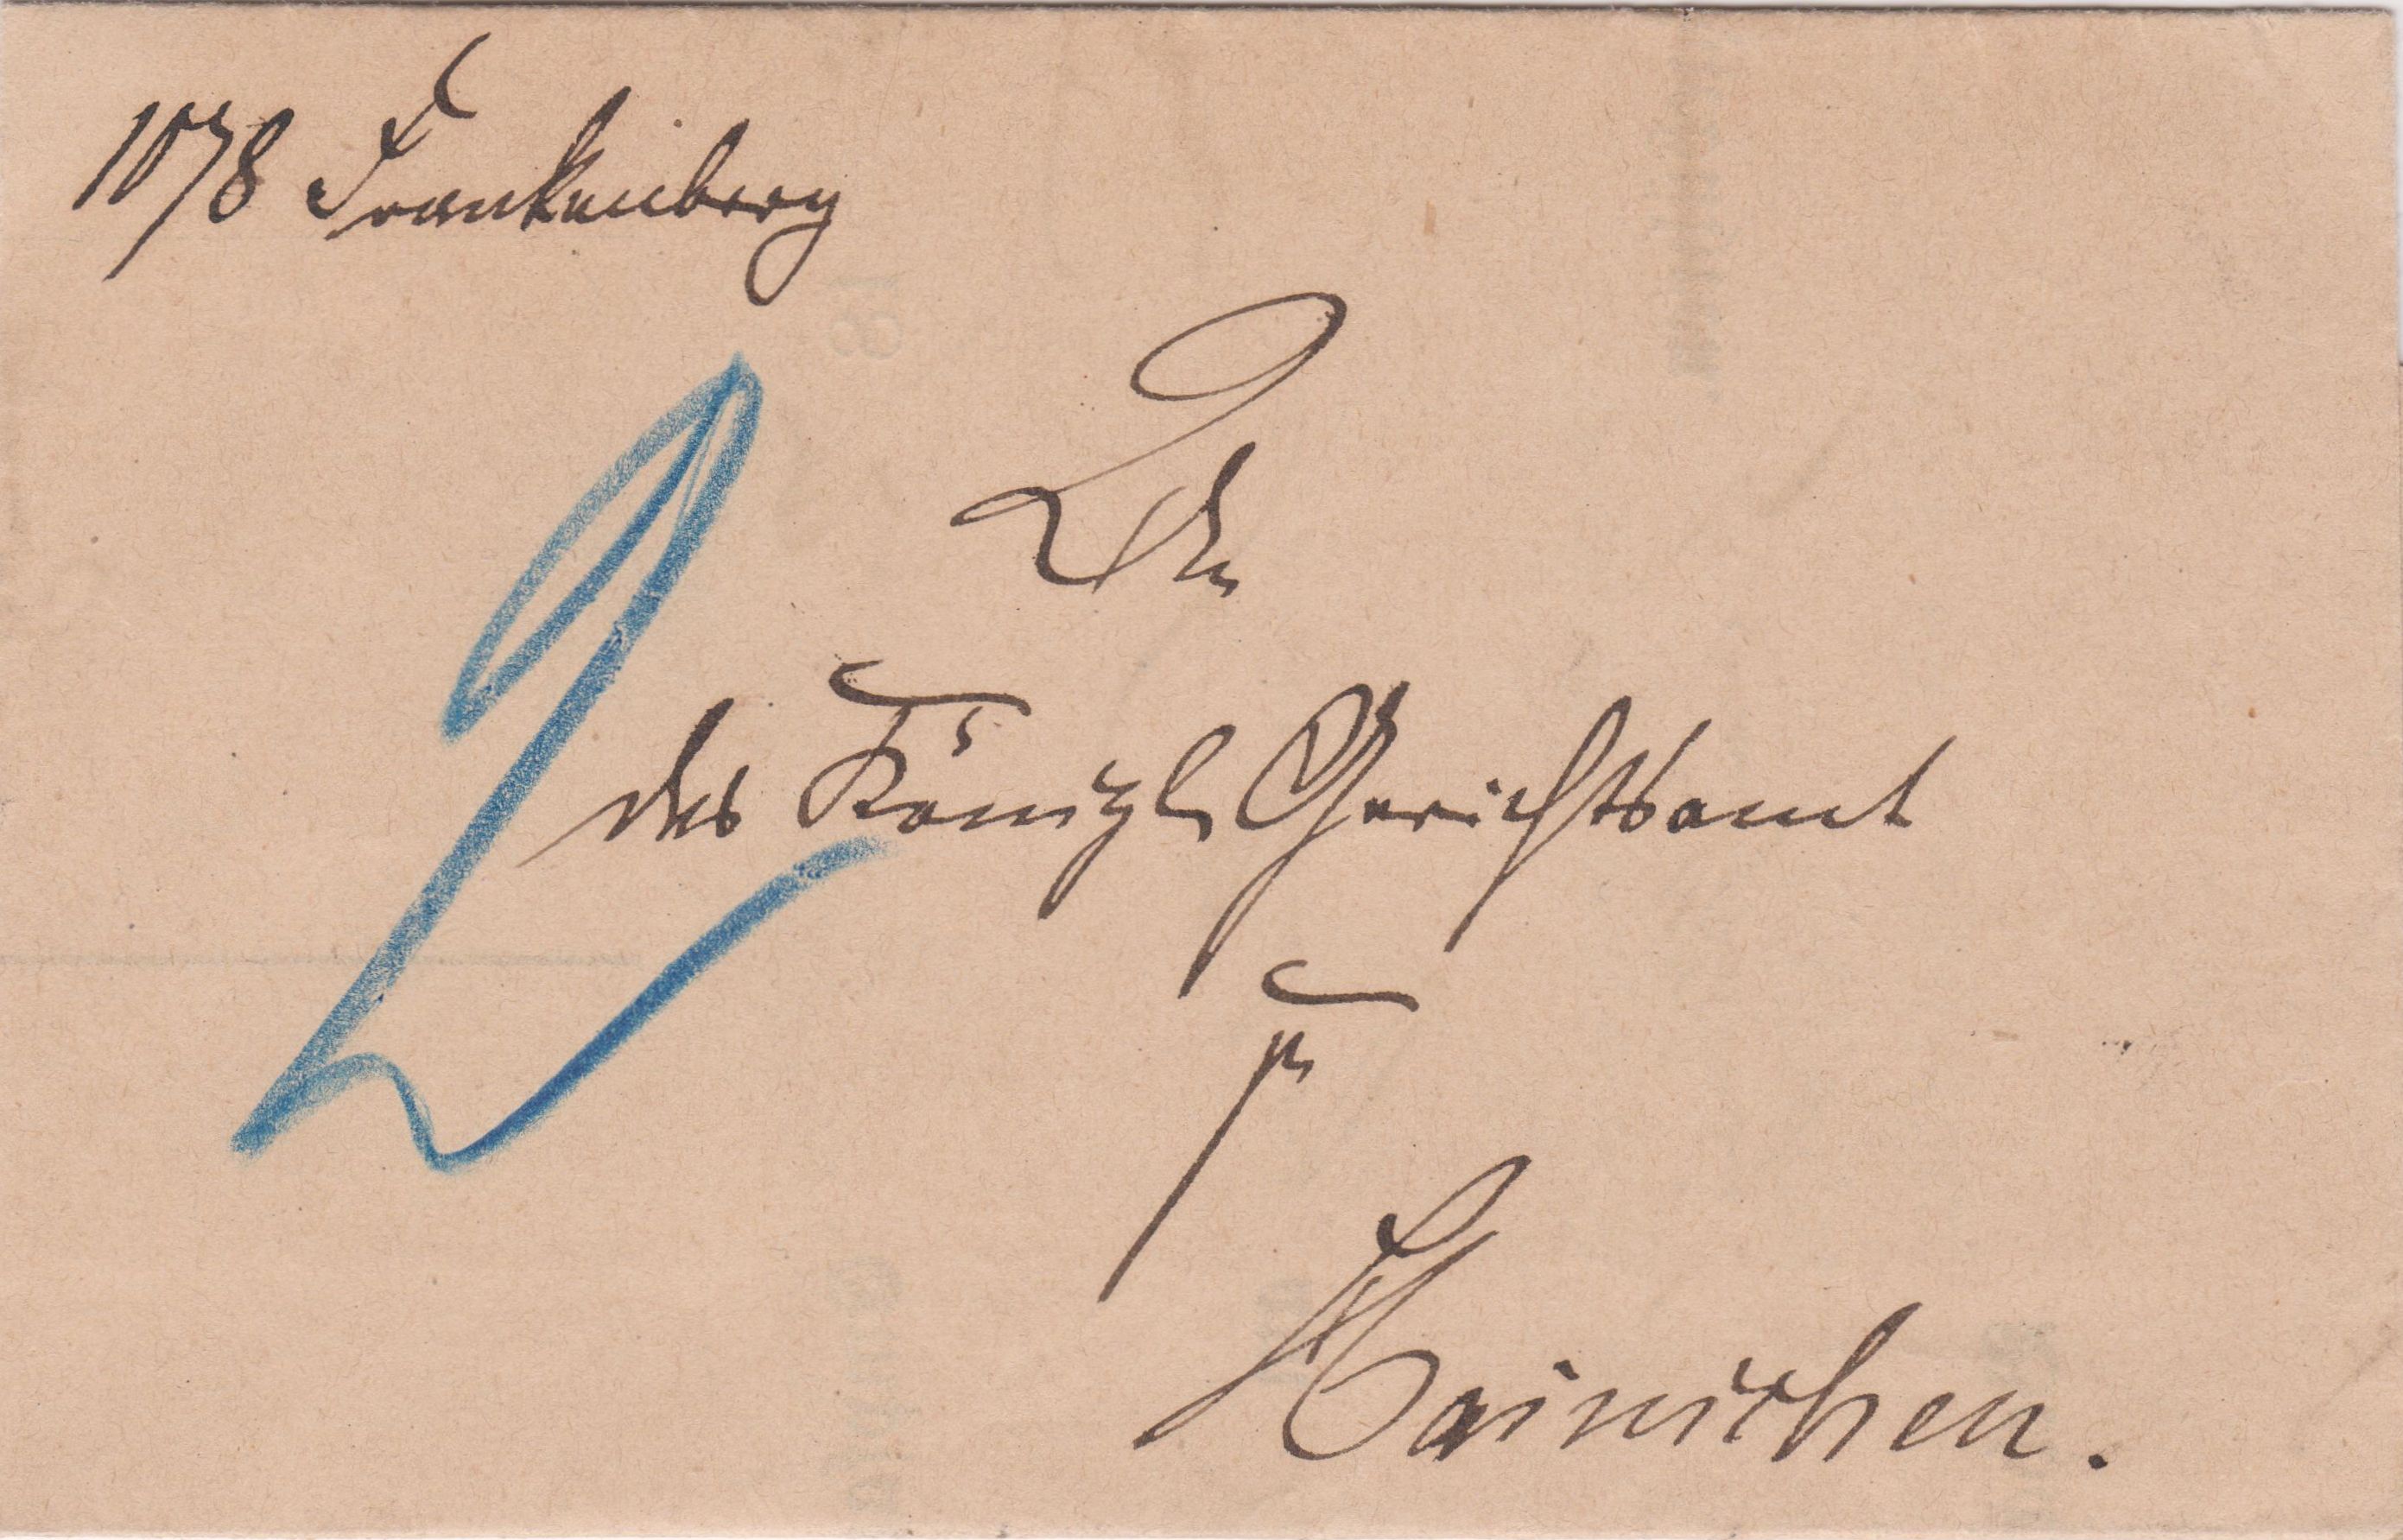 1078 Frankenberg
An
2
das Königl. Gerichtsamt
zu
Hainichen.